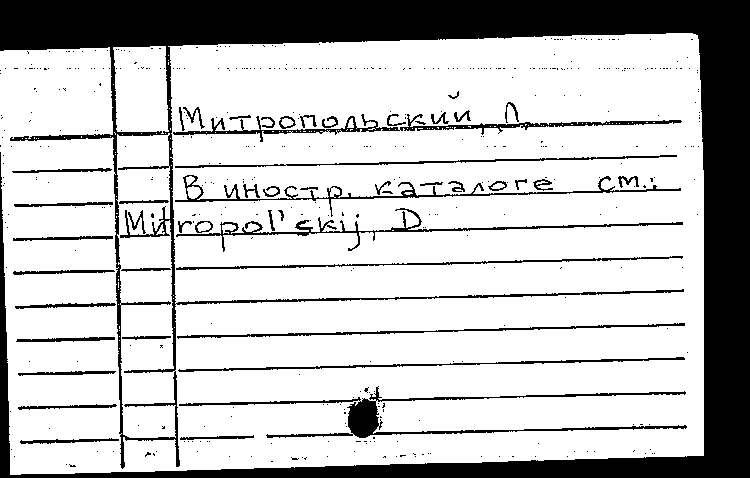 Митропольский, Л
В иностр. каталоге см.:
Mitropol'skij, D